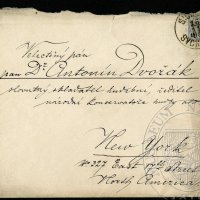 Velectěný pan
pan Dr. Antonín Dvořák
slovutný skladatel hudební, ředitel
národní konservatoře hudby atd.
New York
No 327 East 17th Street
North America